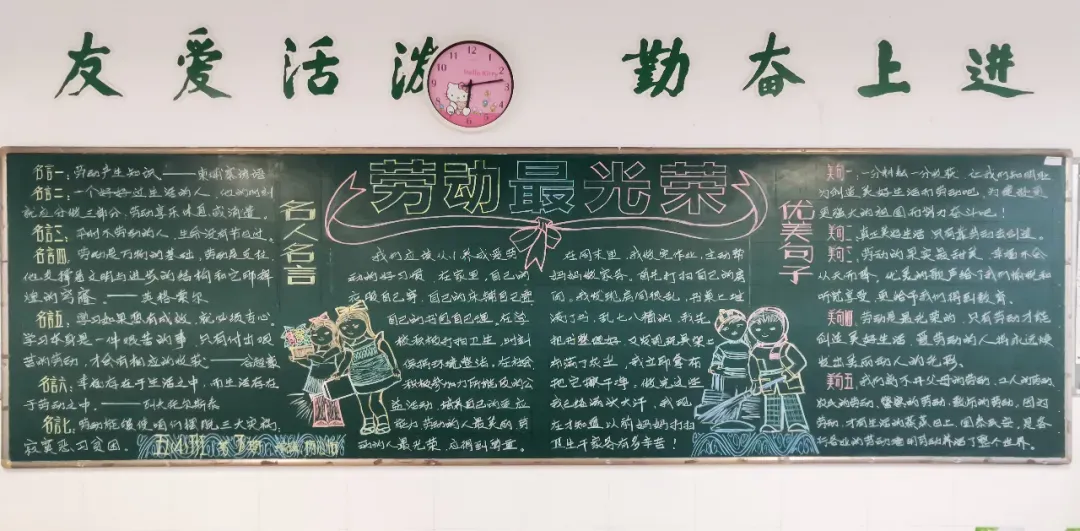 友爱活泼 勤奋上进
劳动最光荣
名人名言
名言一：劳动产生知识——
名言二：一个好好过生活的人，他的时间
就应分做三部分，劳动享乐休息或消遣。
名言三：平时不劳动的人，生命没有节日过。
名言四：劳动是万物的基础，劳动是支柱
他支撑着文明与进步的结构和它那辉
煌的穹窿。——英格索尔
名言五：学习如果想有成效，就必须专心。
学习本身是一件艰苦的事，只有付出艰
苦的劳动，才会有相应的收获——谷超豪
名言六：幸福存在于生活之中，而生活存在
于劳动之中。——列夫托尔斯泰
名言七：劳动能使咱们摆脱三大灾祸，
寂寞恶习贫困。
五(4)班 第 期
我们应该从小养成爱劳
动的好习惯，在家里，自己的
衣服自己穿，自己的床铺自己整
自己的书包自己理。在学
校积极打扫卫生，做到
保持环境整洁，在社会
积极参加力所能及的公
益活动，培养自己的
能力，劳动的人最美丽，劳
动的人最光荣，
在周末里，我做完作业，主动帮
妈妈做家务，首先打扫自己的房
间。我发现房间很乱，书桌上堆
满了书，乱七八糟的，我先
把书整理好，又发现
布满了灰尘，我立即拿布
把它擦干净，做完这些
我已经满头大汗，我现
在才知道，以前妈妈打扫
卫生干家务有多辛苦！
优美句子
美句一：一分耕耘一分收获，让我们
为创造美好生活而劳动吧，为建设更
更强大的祖国而努力奋斗吧！
美句二：真正美好生活，只有靠劳动去创造。
美句三：劳动的果实最甜美，幸福不会
从天而降，优美的歌声给了我们愉悦和
听觉享受，更给予我们得到教育。
美句四：劳动是最光荣的，只有劳动才能
创造美好生活，爱劳动的人将永远焕
发出美丽动人的光彩。
美句五：我们离不开父母的劳动，工人的劳动，
农民的劳动，警察的劳动，教师的劳动，因为
劳动，才有生活的蒸蒸日上，国泰民安，是各
行各业的劳动者用劳动养活了整个世界。